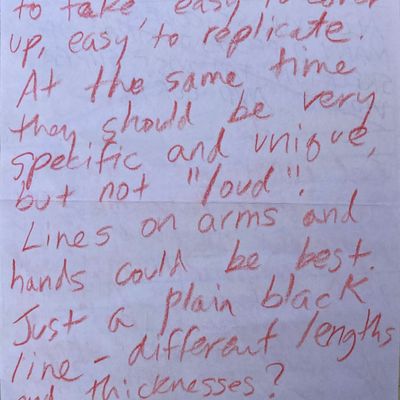 to take easy to cover
up, easy to replicate.
At the same time
they should be very
specific and unique,
but not "loud".
Lines on arms and
hands could be best.
Just a plain black
line - different lengths
and thicknesses?